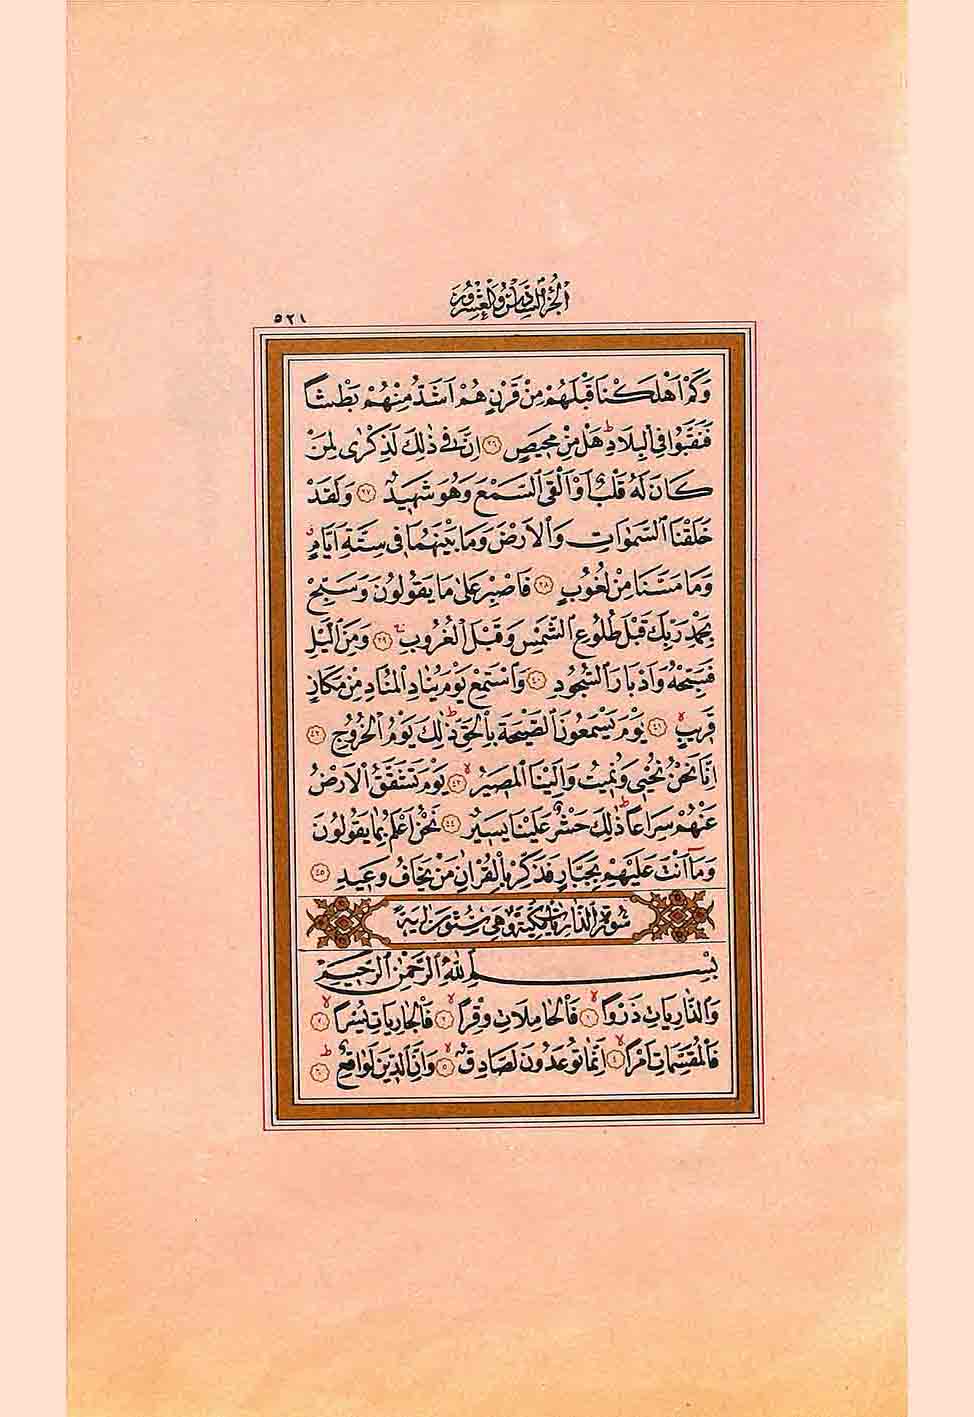 الجزء السادس والعشرون
٥٢١
وَكَمْ اَهْلَكْنَا قَبْلَهُمْ مِنْ قَرْنٍ هُمْ اَشَدُّ مِنْهُمْ بَطْشًا
فَنَقَّبُوا فِي الْبِلَادِۜ هَلْ مِنْ مَحِيصٍ ﴿٣٦﴾ اِنَّ فِي ذٰلِكَ لَذِكْرٰى لِمَنْ
كَانَ لَهُ قَلْبٌ اَوْ اَلْقَى السَّمْعَ وَهُوَ شَهِيدٌ ﴿٣٧﴾ وَلَقَدْ
خَلَقْنَا السَّمٰوَاتِ وَالْاَرْضَ وَمَا بَيْنَهُمَا فِي سِتَّةِ اَيَّامٍ
وَمَا مَسَّنَا مِنْ لُغُوبٍ ﴿٣٨﴾ فَاصْبِرْ عَلٰى مَا يَقُولُونَ وَسَبِّحْ
بِحَمْدِ رَبِّكَ قَبْلَ طُلُوعِ الشَّمْسِ وَقَبْلَ الْغُرُوبِ ﴿٣٩﴾ وَمِنَ الَّيْلِ
فَسَبِّحْهُ وَاَدْبَارَ السُّجُودِ ﴿٤٠﴾ وَاسْتَمِعْ يَوْمَ يُنَادِ الْمُنَادِ مِنْ مَكَانٍ
قَرِيبٍ ﴿٤١﴾ يَوْمَ يَسْمَعُونَ الصَّيْحَةَ بِالْحَقِّ ذٰلِكَ يَوْمُ الْخُرُوجِ ﴿٤٢﴾
اِنَّا نَحْنُ نُحْيِي وَنُمِيتُ وَاِلَيْنَا الْمَصِيرُ ﴿٤٣﴾ يَوْمَ تَشَقَّقُ الْاَرْضُ
عَنْهُمْ سِرَاعًا ذٰلِكَ حَشْرٌ عَلَيْنَا يَسِيرٌ ﴿٤٤﴾ نَحْنُ اَعْلَمُ بِمَا يَقُولُونَ
وَمَا اَنْتَ عَلَيْهِمْ بِجَبَّارٍ فَذَكِّرْ بِالْقُرْاٰنِ مَنْ يَخَافُ وَعِيدِ ﴿٤٥﴾
سُورَةُ الذَّارِيَاتِ مَكِّيَّةٌ وَهِيَ سِتُّونَ اٰيَةً
بِسْمِ اللّٰهِ الرَّحْمٰنِ الرَّحِيمِ
وَالذَّارِيَاتِ ذَرْوًا ﴿١﴾ فَالْحَامِلَاتِ وِقْرًا ﴿٢﴾ فَالْجَارِيَاتِ يُسْرًا ﴿٣﴾
فَالْمُقَسِّمَاتِ اَمْرًا ﴿٤﴾ اِنَّمَا تُوعَدُونَ لَصَادِقٌ ﴿٥﴾ وَاِنَّ الدِّينَ لَوَاقِعٌ ﴿٦﴾